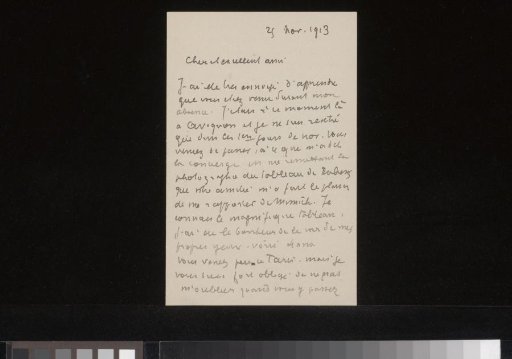 25 Nov. 1913
Cher et excellent ami
J'ai été très ennuyé d'apprendre
que vous étiez venu durant mon
absence. J'étais à ce moment là
à Avignon et je ne suis rentré
que dans les 1ers jours de nov. Vous
veniez de passer, à ce que m'a dit
la concierge en me remettant la
photographie du tableau de
que votre amitié m'a fait le plaisir
de me rapporter de Munich. Je
connais le magnifique tableau,
j'ai eu le bonheur de le voir de mes
propres yeux
Vous venez peu à Paris. mais je
vous serai fort obligé de ne pas
m'oublier quand vous y passez